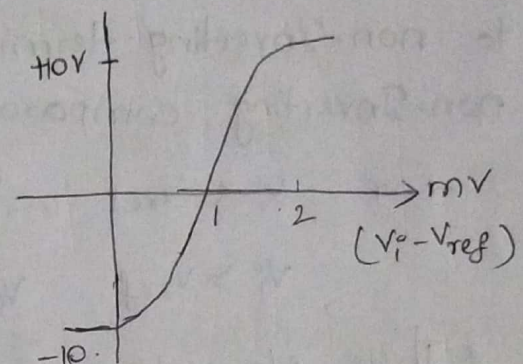 +10V
mV
1 2
(Vi - Vref)
-10.